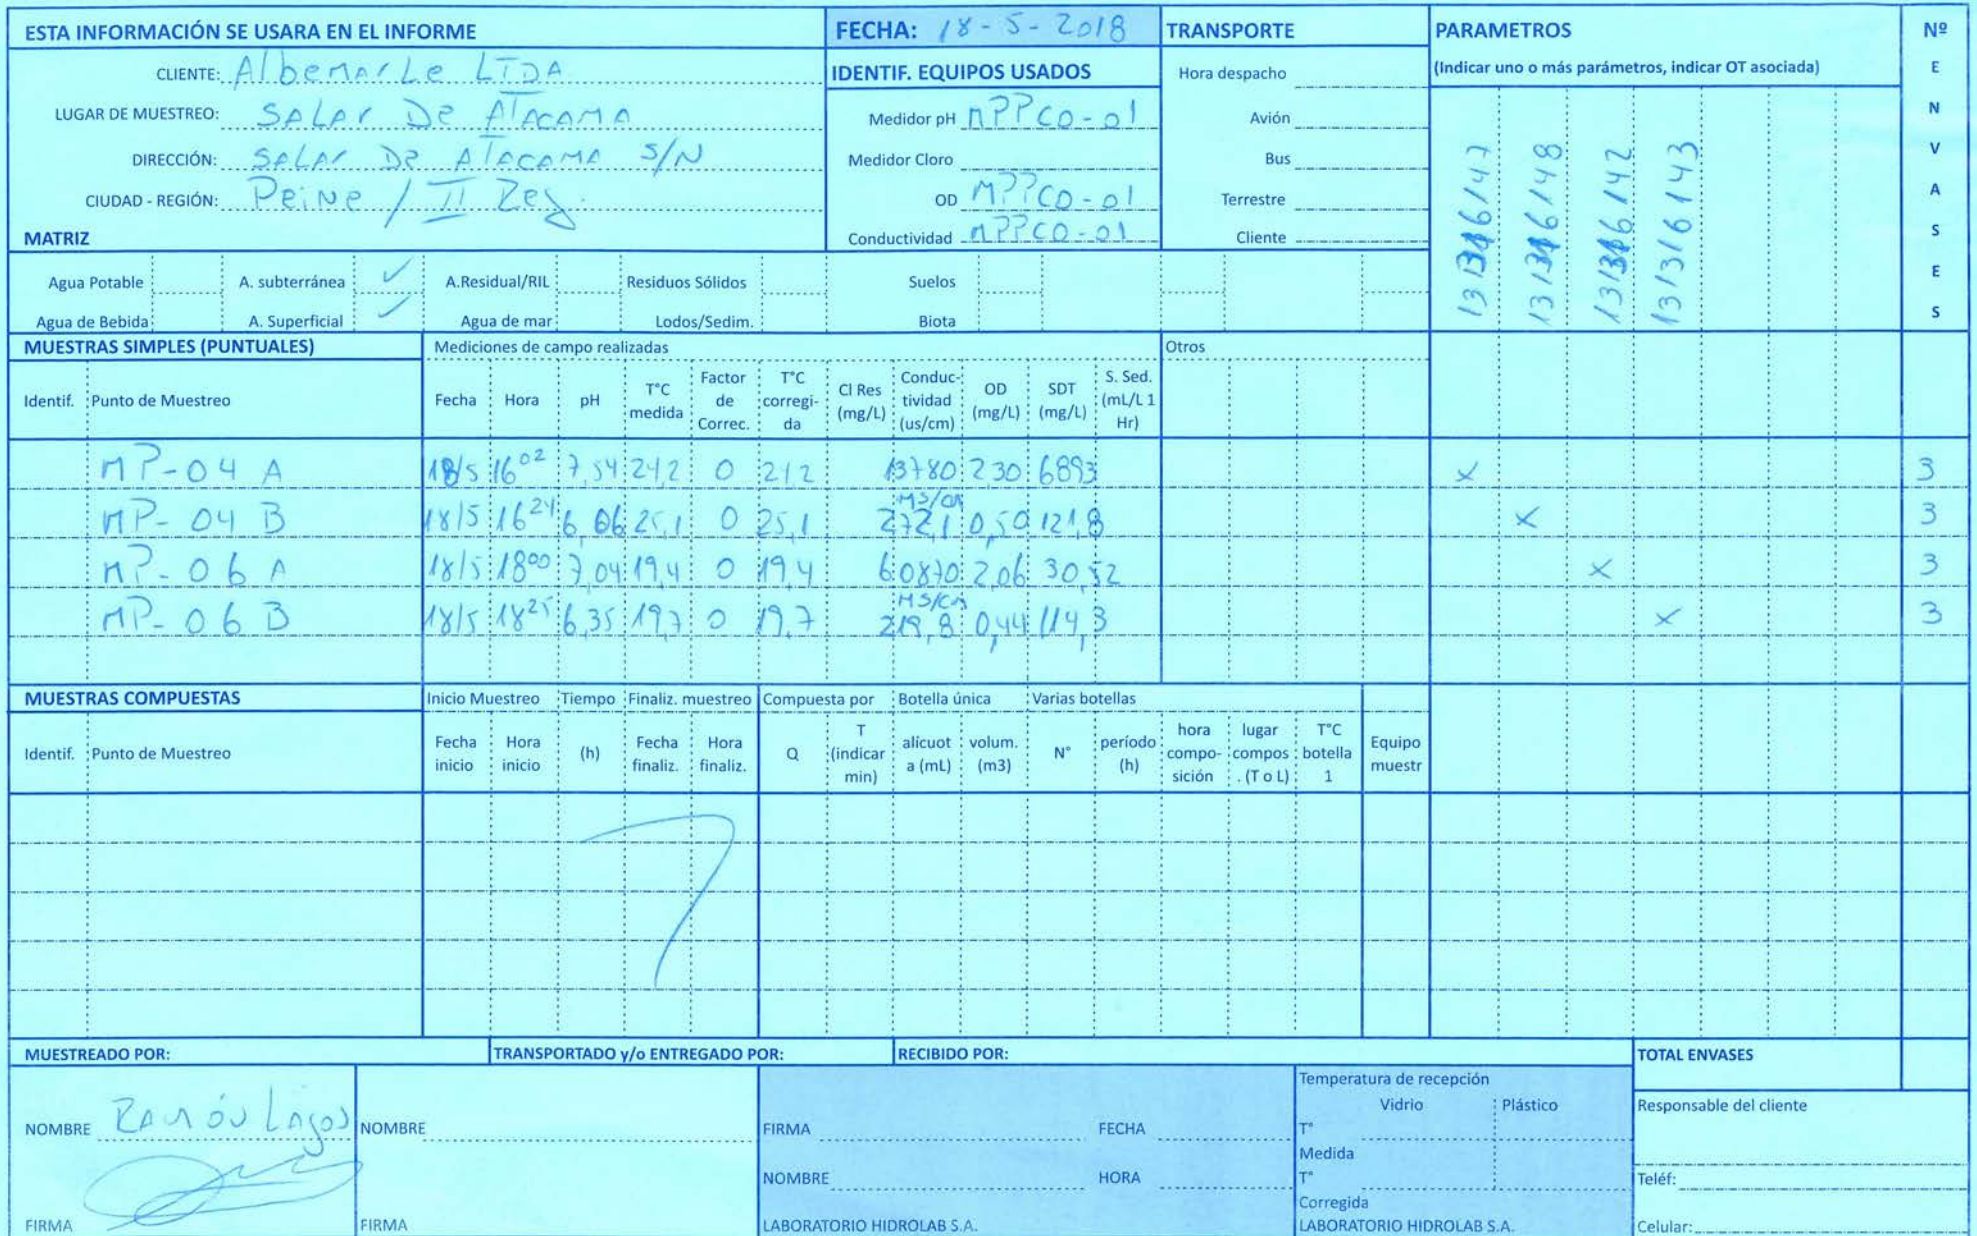 ESTA INFORMACIÓN SE USARA EN EL INFORME
CLIENTE: Albemarle LTDA
LUGAR DE MUESTREO: SALAR De ATACAMA
DIRECCIÓN: SALAR DE ATACAMA S/N
CIUDAD - REGIÓN: Peine / II Reg.
FECHA: 18-5-2018
IDENTIF. EQUIPOS USADOS
Medidor pH MPPCO-01
Medidor Cloro
OD MPPCO-01
Conductividad MPPCO-01
TRANSPORTE
Hora despacho
Avión
Bus
Terrestre
Cliente
PARAMETROS
(Indicar uno o más parámetros, indicar OT asociada)
147 148 142 1316143
Nº
E
N
V
A
S
E
S
MATRIZ
Agua Potable A. subterránea ✓ A.Residual/RIL Residuos Sólidos Suelos
Agua de Bebida A. Superficial ✓ Agua de mar Lodos/Sedim. Biota
MUESTRAS SIMPLES (PUNTUALES) Mediciones de campo realizadas Otros
Identif. Punto de Muestreo Fecha Hora pH T°C medida Factor de Correc. T°C corregida Cl Res (mg/L) Conduc-tividad (us/cm) OD (mg/L) SDT (mg/L) S. Sed. (mL/L 1 Hr)
MP-04 A 18/5 16 02 7,54 24,2 0 24,2 13780 2,30 6893 x 3
MP-04 B 18/5 16 24 6,06 25,1 0 25,1 MS/cm 272,1 0,50 121,8 x 3
MP-06 A 18/5 18 00 7,04 19,4 0 19,4 60870 2,06 30,52 x 3
MP-06 B 18/5 18 25 6,35 19,7 0 19,7 MS/cm 219,8 0,44 114,3 x 3
MUESTRAS COMPUESTAS Inicio Muestreo Tiempo Finaliz. muestreo Compuesta por Botella única Varias botellas
Identif. Punto de Muestreo Fecha inicio Hora inicio (h) Fecha finaliz. Hora finaliz. Q T (indicar min) alicuot a (mL) volum. (m3) N° período (h) hora compo-sición lugar compos . (T o L) T°C botella 1 Equipo muestr
MUESTREADO POR: TRANSPORTADO y/o ENTREGADO POR: RECIBIDO POR: TOTAL ENVASES
NOMBRE Ramón Lagos
FIRMA
NOMBRE
FIRMA
FIRMA FECHA
NOMBRE HORA
LABORATORIO HIDROLAB S.A.
Temperatura de recepción
Vidrio Plástico
T°
Medida
T°
Corregida
LABORATORIO HIDROLAB S.A.
Responsable del cliente
Teléf:
Celular: